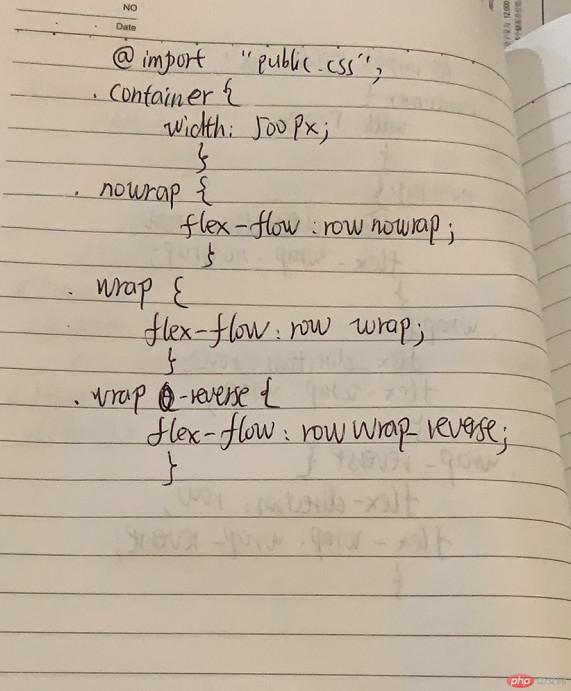 NO
Date
@ import "public.css";
. container {
width: 500px;
}
. nowrap {
flex-flow : row nowrap;
}
. wrap {
flex-flow: row wrap;
}
. wrap -reverse {
flex-flow : row wrap-reverse;
}
php